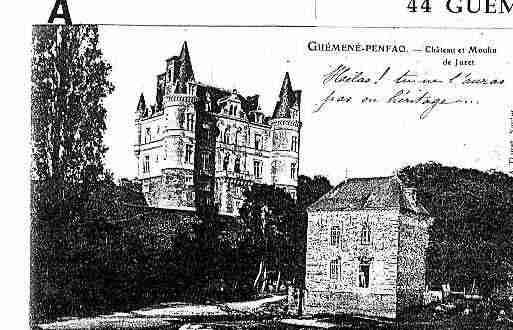 A
44 GUÉM
GUÉMENÉ-PENFAO. — Château et Moulin
de Juzet
Hélas! tu ne l'auras
pas en héritage...